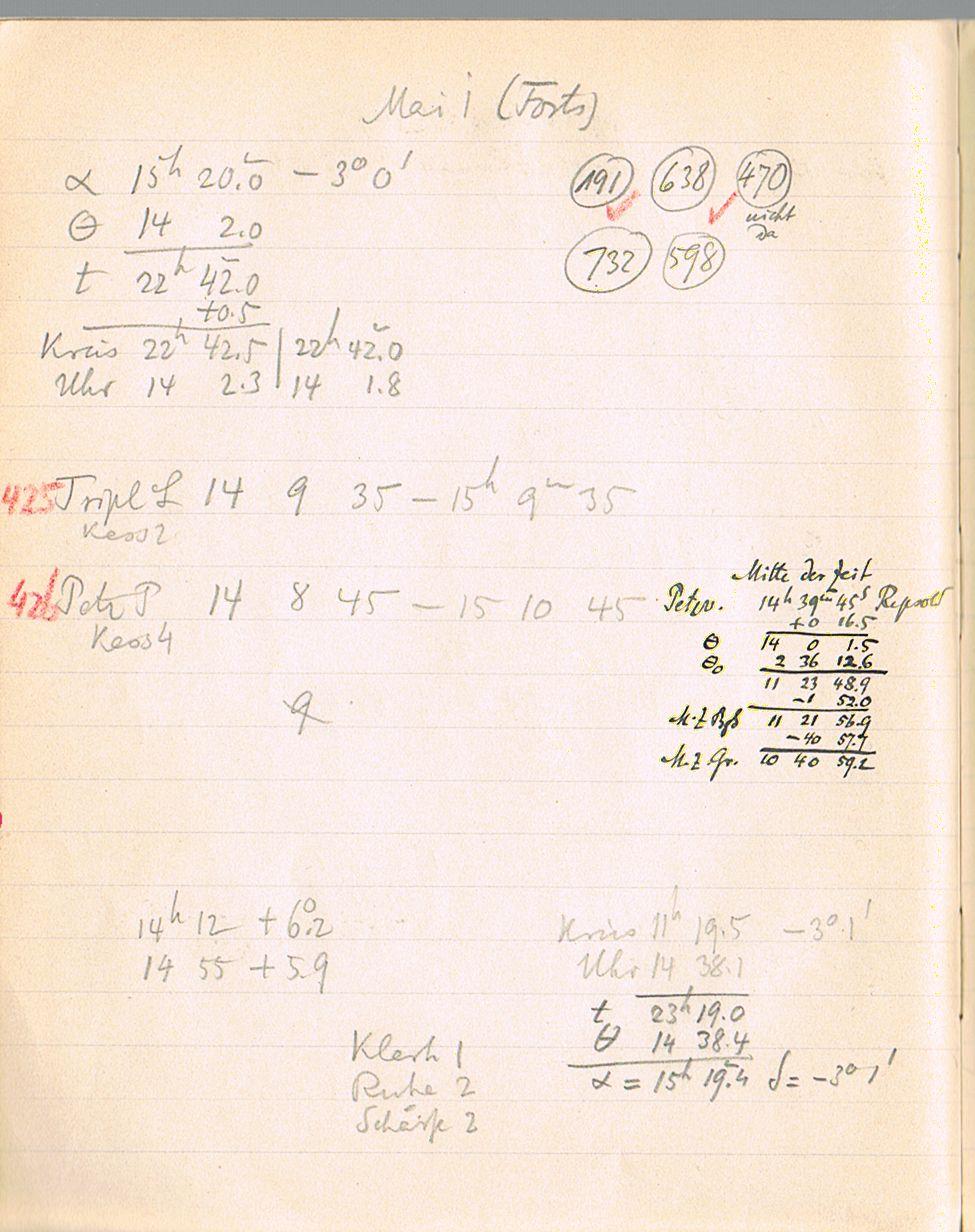 Mai 1 (Forts)
α 15h 20.m0 − 3° 0'
θ 14 2.0
t 22h 42.m0
+0.5
Kreis 22h 42.5 | 22h 42.m0
Uhr 14 2.3 | 14 1.8
191 638 470
nicht
da
732 598
425 Tripl L 14 9 35 − 15h 9m 35
Kass 2
426 Petz P 14 8 45 − 15 10 45
Kass 4
Mitte der Zeit
Petzv. 14h 39m 45s Repsold
+0 16.5
θ 14 0 1.5
θ₀ 2 36 12.6
11 23 48.9
−1 52.0
M.Z. Bgf 11 21 56.9
−40 57.7
M.Z. Gr. 10 40 59.2
14h 12 + 6°.2
14 55 + 5.9
Kreis 11h 19.5 − 3° 1'
Uhr 14 38.1
t 23h 19.0
θ 14 38.4
α = 15h 19.m4 δ = −3° 1'
Klarh 1
Ruhe 2
Schärfe 2